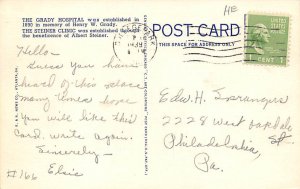 HE
THE GRADY HOSPITAL was established in
1890 in memory of Henry W. Grady.
THE STEINER CLINIC was established through
the beneficence of Albert Steiner.
POST CARD
THIS SPACE FOR ADDRESS ONLY
UNITED STATES
1 CENT 1
Hello -
Guess you have
heard of this place
many times. hope
You will like this
Card. write again.
Sincerely -
Elsie
#166
Edw. H.
2228 West Oakdale
St.
Philadelphia,
Pa.